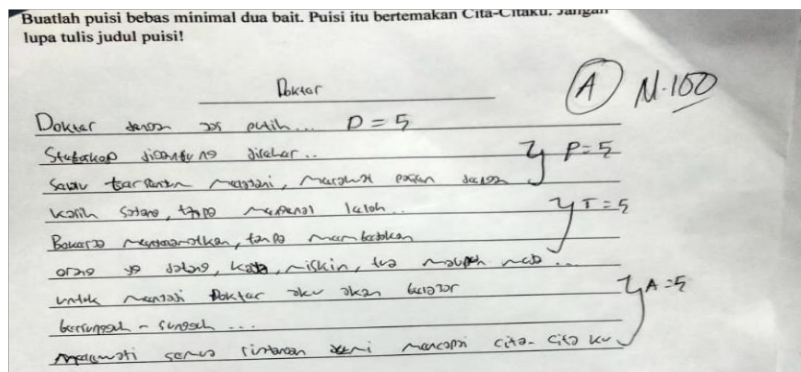 Buatlah puisi bebas minimal dua bait. Puisi itu bertemakan Cita-Citaku. Jangan
lupa tulis judul puisi!
Doktor
A N.100
Doktar dengan jas putih... D = 5
Stetoskop digantung dileher..
P = 5
Selalu melayani, merawat pasien dengan
kasih sayang, tanpa mengenal lelah...
T = 5
Bekerja tanpa membedakan
orang yg datang, kaya, miskin, tua maupun
untuk menjadi Doktar aku akan belajar
A = 5
bersunggoh - sunggoh ...
semua rintangan demi mencapai cita-cita ku